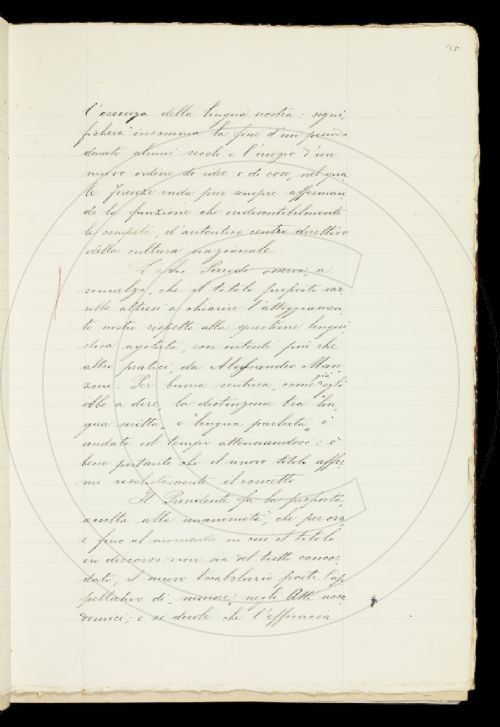 l'essenza della lingua nostra: signi,
ficherà insomma la fine d'un periodo
durato alcuni secoli e l'inizio d'un
nuovo ordine di idee e di cose, nel qua
le Firenze vada pur sempre afferman
do la funzione che indiscutibilmente
le compete, d'autentico centro direttivo
della cultura nazionale.
L'Acc. Parodi osserva, a
sua volta, che il titolo proposto var
rebbe altresì a chiarire l'atteggiamen,
to nostro rispetto alla questione lingui
stica agitata, con intenti più che
altro pratici, da Alessandro Man,
zoni. Per buona ventura, come già egli
ebbe a dire, la distinzione tra "lin,
gua scritta" e "lingua parlata" è
andata col tempo attenuandosi: è
bene pertanto che il nuovo titolo affer
mi risolutamente il concetto.
Il Presidente fa la proposta,
accolta alla unanimità, che per ora,
e fino al momento in cui il titolo
in discorso non sia del tutto concor,
dato, il nuovo Vocabolario porti l'ap,
pellativo di "minore" negli Atti acca,
demici; e si duole che l'efficacia